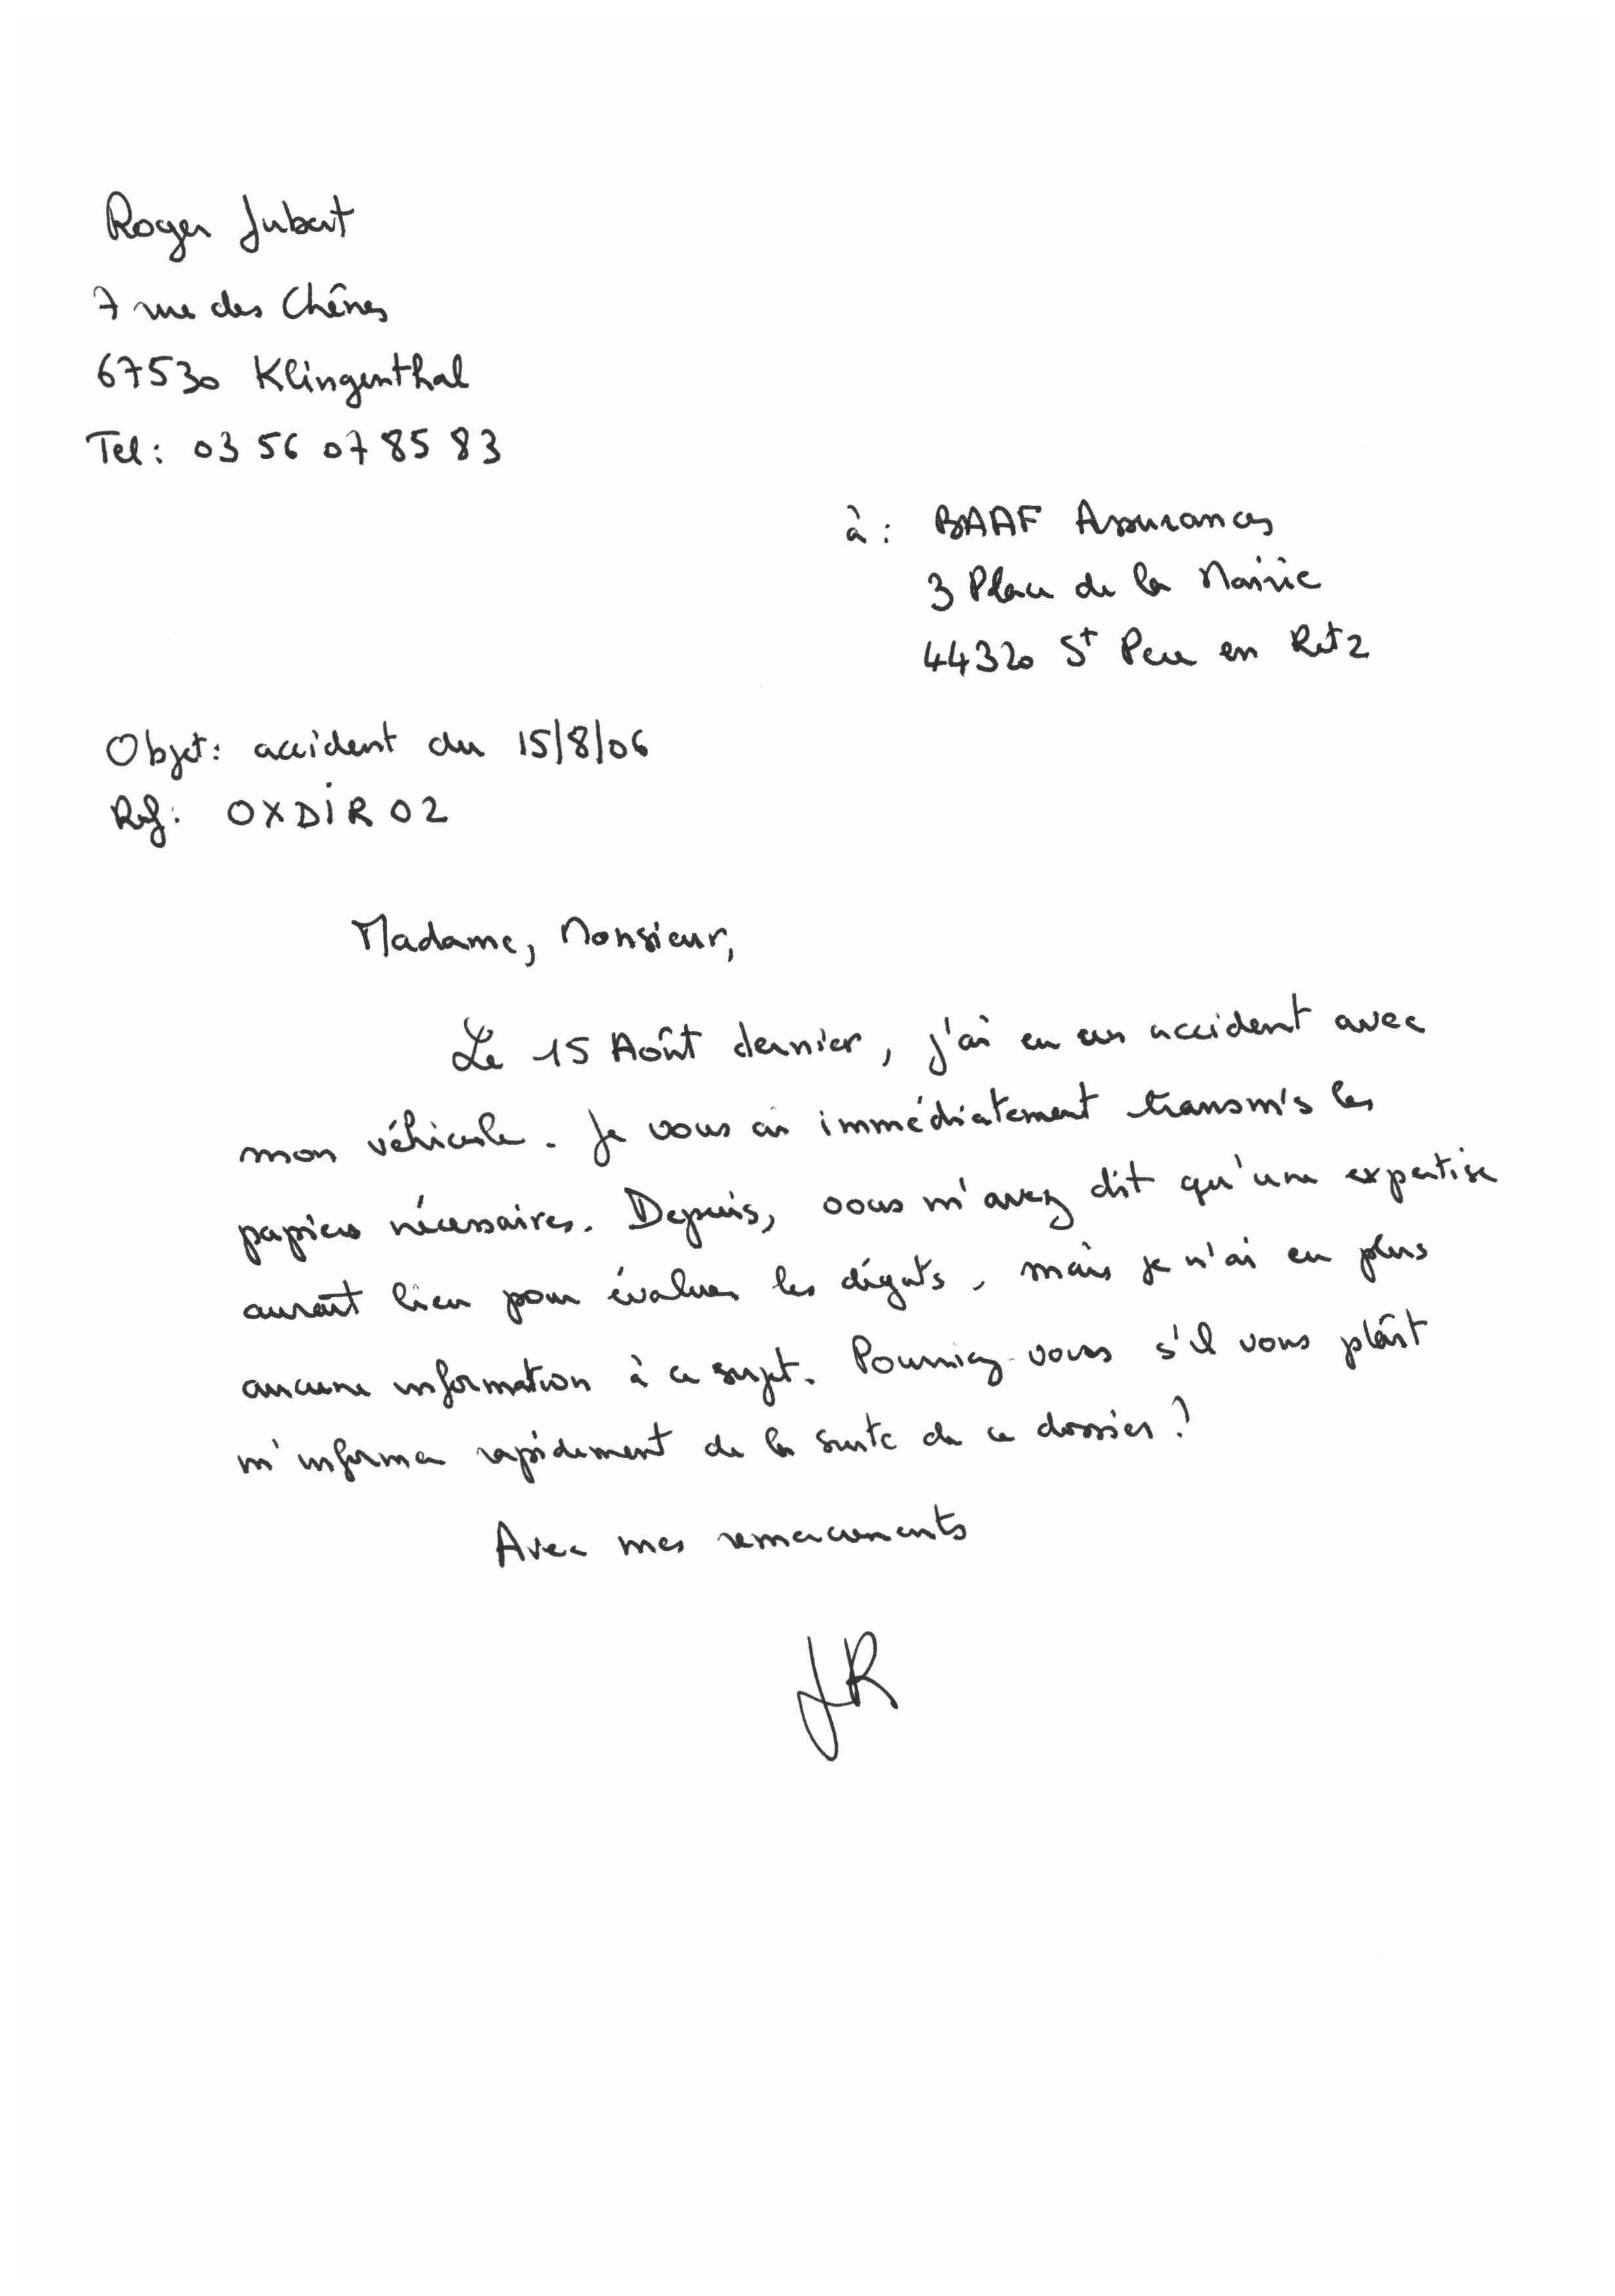 Roger Jubert
7 rue des Chênes
67530 Klingenthal
Tel : 03 56 07 85 83
à : BAAF Assurances
3 Place de la Mairie
44320 St Pere en Retz
Objet : accident du 15/8/06
Ref : OXDIR02
Madame, Monsieur,
Le 15 Août dernier, j'ai eu un accident avec
mon véhicule. Je vous ai immédiatement transmis les
papiers nécessaires. Depuis, vous m'avez dit qu'une expertise
aurait lieu pour évaluer les dégats, mais je n'ai eu plus
aucune information à ce sujet. Pourriez-vous s'il vous plaît
m'informer rapidement de la suite de ce dossier ?
Avec mes remerciements
JR